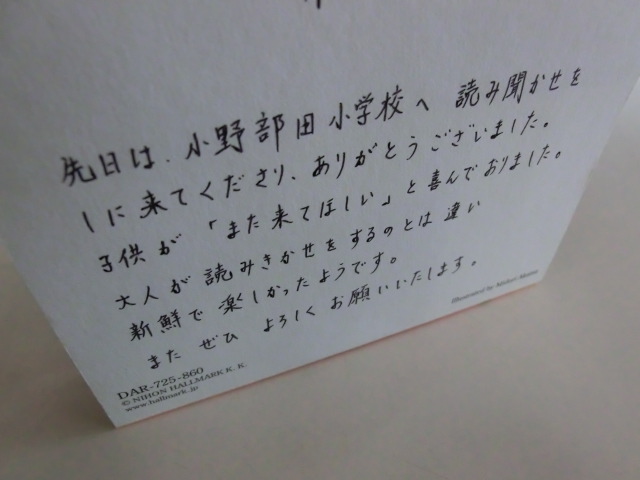 先日は、小野部田小学校へ 読み聞かせを
しに来てくださり、ありがとうございました。
子供が 「また来てほしい」と喜んでおりました。
大人が 読みきかせをするのとは 違い
新鮮で 楽しかったようです。
また ぜひ よろしく お願いいたします。
DAR-725-860
© NIHON HALLMARK K. K.
www.hallmark.jp